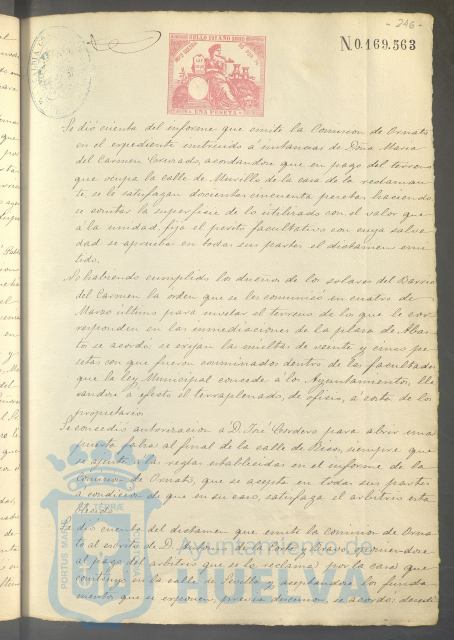 - 246 -
N0.169.563
SELLO 11º AÑO
UNA PESETA
Se dió cuenta del informe que emite la Comision de Ornato
en el expediente instruido á instancias de Doña Maria
del Carmen Coronado, acordandose que en pago del terreno
que ocupa la calle de Murillo de la casa de la reclaman
te, se le satisfagan doscientas cincuenta pesetas, haciendo
se constar la superficie de lo utilizado con el valor que
á la unidad, fija el perito facultativo con cuya salve
dad se aprueba en todas sus partes el dictamen emi
tido.
No habiendo cumplido los dueños de los solares del Barrio
del Carmen la orden que se les comunicó en cuatro de
Marzo último para nivelar el terreno de lo que le cor
responden en las inmediaciones de la plaza de Abas
to se acordó: se exijan las multas de veinte y cinco pe
setas con que fueron conminados dentro de las facultades
que la ley Municipal concede á los Ayuntamientos, lle
vandose á efecto el terraplenado, de oficio, á costa de los
propietarios.
Se concedió autorizacion á D. José Cordero para abrir una
puerta falsa al final de la calle de siempre que
se ajuste á las reglas establecidas en el informe de la
Comision de Ornato, que se acepta en todas sus partes
á condicion de que en su caso, satisfaga el arbitrio esta
blecido.
Se dió cuenta del dictamen que emite la Comision de Orna
to al escrito de D. de la Corte y Bravo oponiendose
al pago del arbitrio que se le reclama por la casa que
construyó en la calle de Sevilla y aceptandose los funda
mentos que se exponen, previa discusion, se acordó: desesti
PORTUS MARIS
TERRAE
Ayuntamiento de
HUELVA